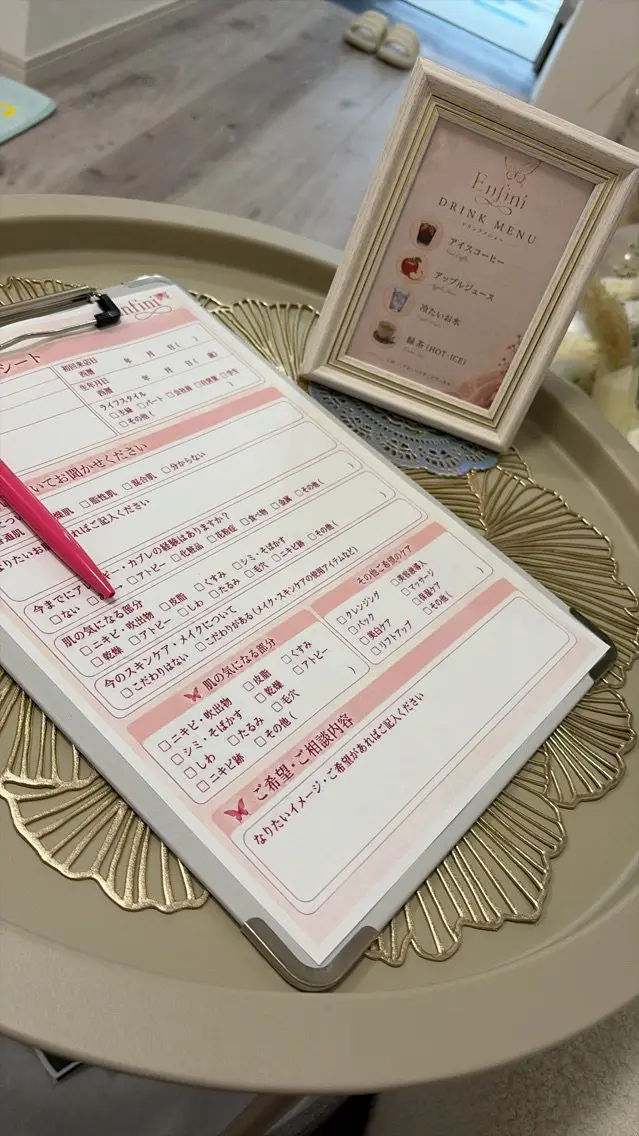 Enfini
DRINK MENU
ドリンクメニュー
アイスコーヒー
アップルジュース
冷たいお水
緑茶(HOT・ICE)
Enfini
シート
初回来店日
西暦 年 月 日( )
生年月日
西暦 年 月 日( 歳)
ライフスタイル
□主婦 □パート □会社員 □自営業 □学生
□その他( )
いてお聞かせください
燥肌 □脂性肌 □混合肌 □分からない
ればご記入ください
今までにア ー・カブレの経験はありますか?
□ない □アトピー □化粧品 □花粉症 □食べ物 □金属 □その他( )
肌の気になる部分
□ニキビ・吹出物 □皮脂 □くすみ □シミ・そばかす
□乾燥 □アトピー □しわ □たるみ □毛穴 □ニキビ跡 □その他( )
今のスキンケア・メイクについて
□こだわりはない □こだわりがある(メイク・スキンケアの使用アイテムなど)
肌の気になる部分
□ニキビ・吹出物 □皮脂 □くすみ
□シミ・そばかす □乾燥 □アトピー
□しわ □たるみ □毛穴
□ニキビ跡 □その他( )
その他ご希望のケア
□クレンジング □美容液導入
□パック □マッサージ
□美白ケア □保湿ケア
□リフトアップ □その他( )
ご希望・ご相談内容
なりたいイメージ・ご希望があればご記入ください